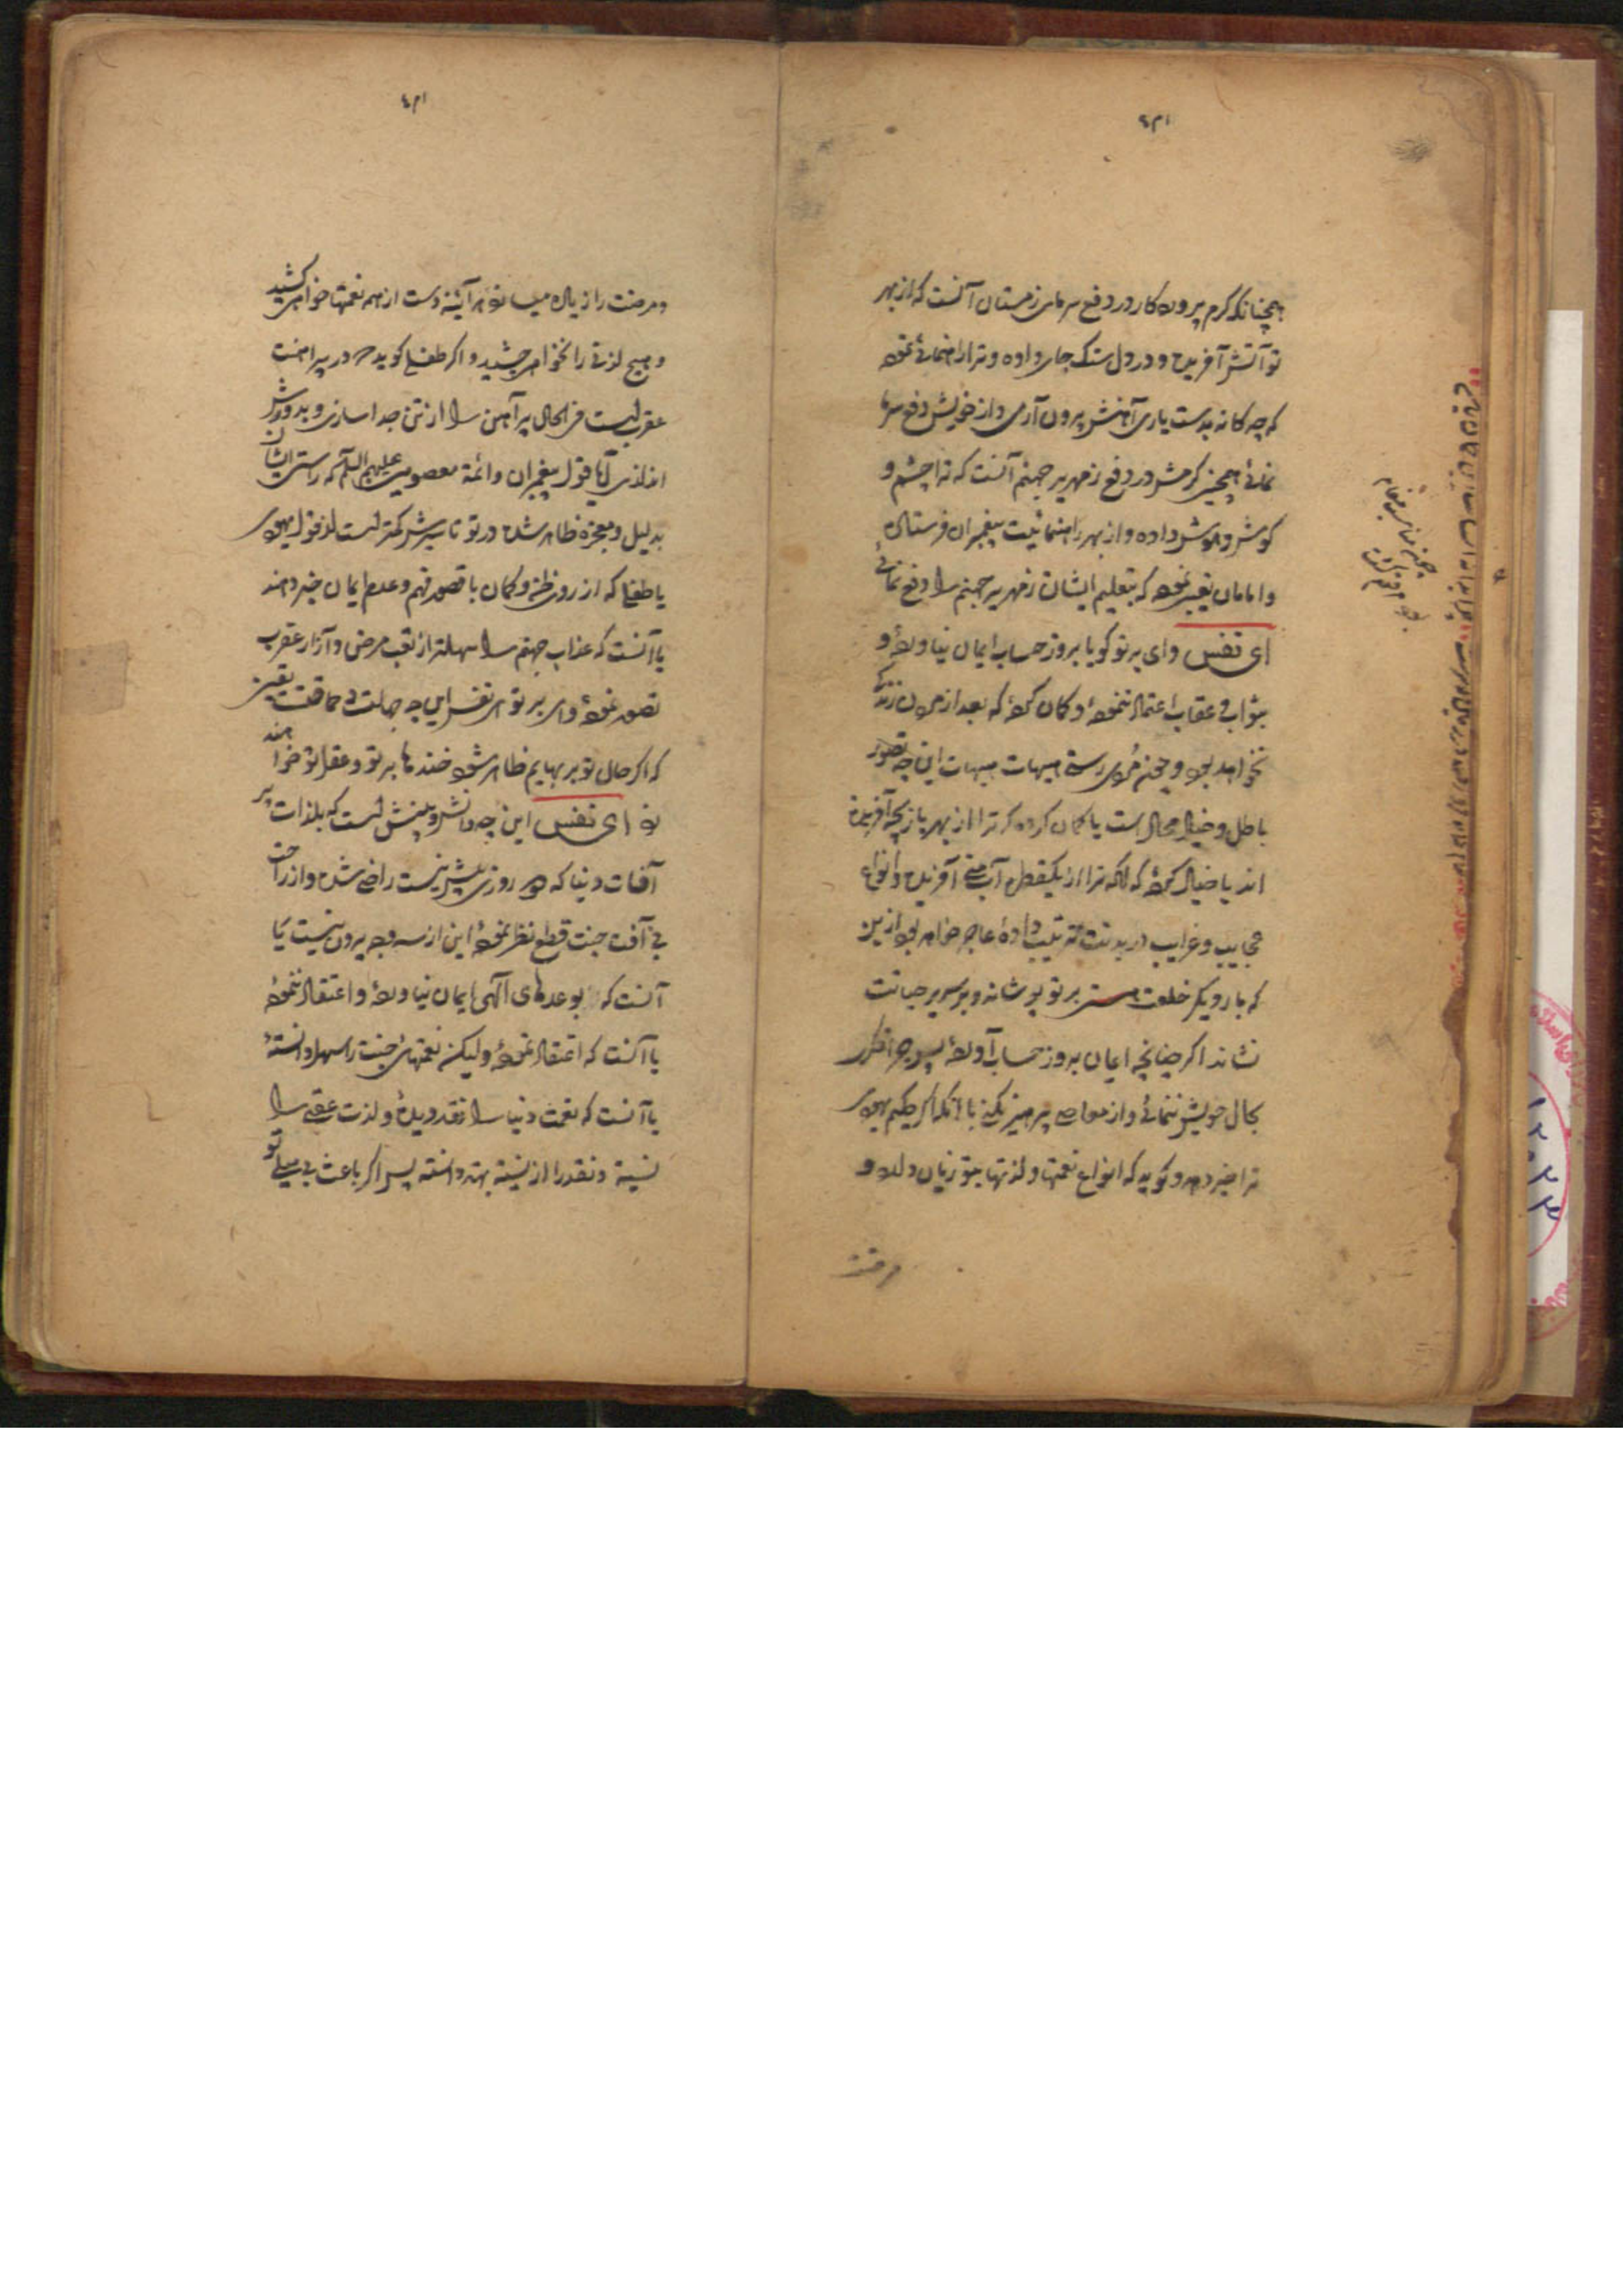 همچنانکه کرم پروردکار در دفع سرمای زمستان آنست که از بهر
تو آتش آفریده و در دل سنک جای داده و ترا راهنمائی نموده
که چه کانه بدست یاری آهنش بیرون آری و از خویش دفع سرما
نمائی همچنین کرمش در دفع زمهریر جهنم آنست که ترا چشم و
کوش و هوش داده و از بهر راهنمائیت پیغمبران فرستاده
و امامان تعیین نموده که بتعلیم ایشان زمهریر جهنم را دفع نمائی
ای نفس وای بر تو کویا بروز حساب ایمان نیاورده و
بثواب و عقاب اعتماد ننموده و کمان کرده که بعد از مردن زندکی
نخواهد بود و چون مردی رستی هیهات هیهات این چه تصور
باطل و خیال محال است یا کمان کرده که ترا از بهر بازیچه آفریده
اند یا خیال کرده که آنکه ترا از یکقطره آب منی آفریده و انواع
عجایب و غرایب در بدنت ترتیب داده عاجز خواهد بود ازین
که بار دیکر خلعت هستی بر تو پوشاند و بر سریر حیاتت
نشاند اکر چنانچه ایمان بروز حساب آورده پس چرا فکر
بحال خویش ننمائی و از معاصی پرهیز نکنی با آنکه اکر حکیم یهودی
ترا خبر دهد و کوید که انواع نعمتها و لذتها بتو زیان دارد و
مرضت
و مرضت را زیاده میسازد هر آینه دست از همه نعمتها خواهی کشید
و هیچ لذتی را نخواهی چشید و اکر طفلی کوید که در پیراهنت
عقربیست فی الحال پیراهن را از تن جدا سازی و بدورش
اندازی آیا قول پیغمبران و ائمه معصومین علیهم السلام که راستی ایشان
بدلیل و معجزه ظاهر شده در تو تاثیرش کمتر است از قول یهودی
یا طفلی که از روی ظن و کمان با قصور فهم و عدم ایمان خبر دهند
یا آنست که عذاب جهنم را سهلتر از تعب مرض و آزار عقرب
تصور نموده وای بر تو ای نفس این چه جهلت و حماقتست یقین
که اکر حال تو بر بهایم ظاهر شود خنده ها بر تو و عقل تو خواهند
زد ای نفس این چه دانش و بینش است که بلذات پر
آفات دنیا که دو روزی بیش نیست راضی شده و از راحت
بی آفت جنت قطع نظر نموده این از سه وجه بیرون نیست یا
آنست که بوعدهای الهی ایمان نیاورده و اعتقاد ننموده
یا آنست که اعتقاد نموده ولیکن نعمتهای جنت را سهل دانسته
یا آنست که نعمت دنیا را نقد دیده و لذت عقبی را
نسیه و نقد را از نسیه بهتر دانسته پس اکر باعث بی میلی تو